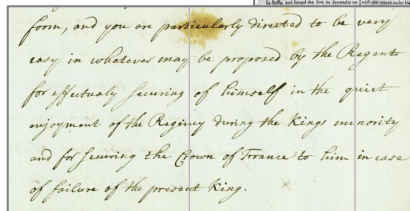 form, and you are particularly directed to be very
easy in whatever may be proposed by the Regent
for effectualy securing of himself in the quiet
enjoyment of the Regincy during the Kings minority
and for securing the Crown of France to him in case
of failure of the present King.